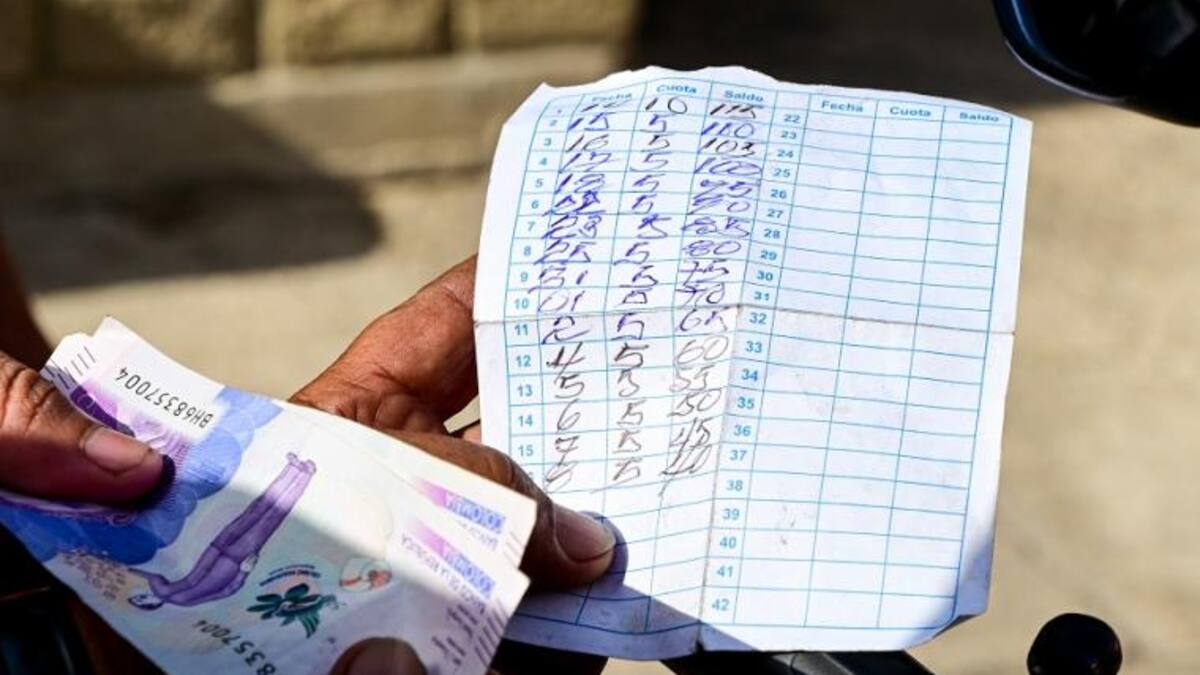 Fecha Cuota Saldo
1 10 115
2 15 5 110
3 16 5 105
4 17 5 100
5 19 5 95
6 5 90
7 23 5 85
8 25 5 80
9 31 5 75
10 01 5 70
11 2 5 65
12 4 5 60
13 5 5 55
14 6 5 50
15 7 5 45
5 40
Fecha Cuota Saldo
22
23
24
25
26
27
28
29
30
31
32
33
34
35
36
37
38
39
40
41
42
BH68357004
COLOMBIA
COLOMBIA
8357004